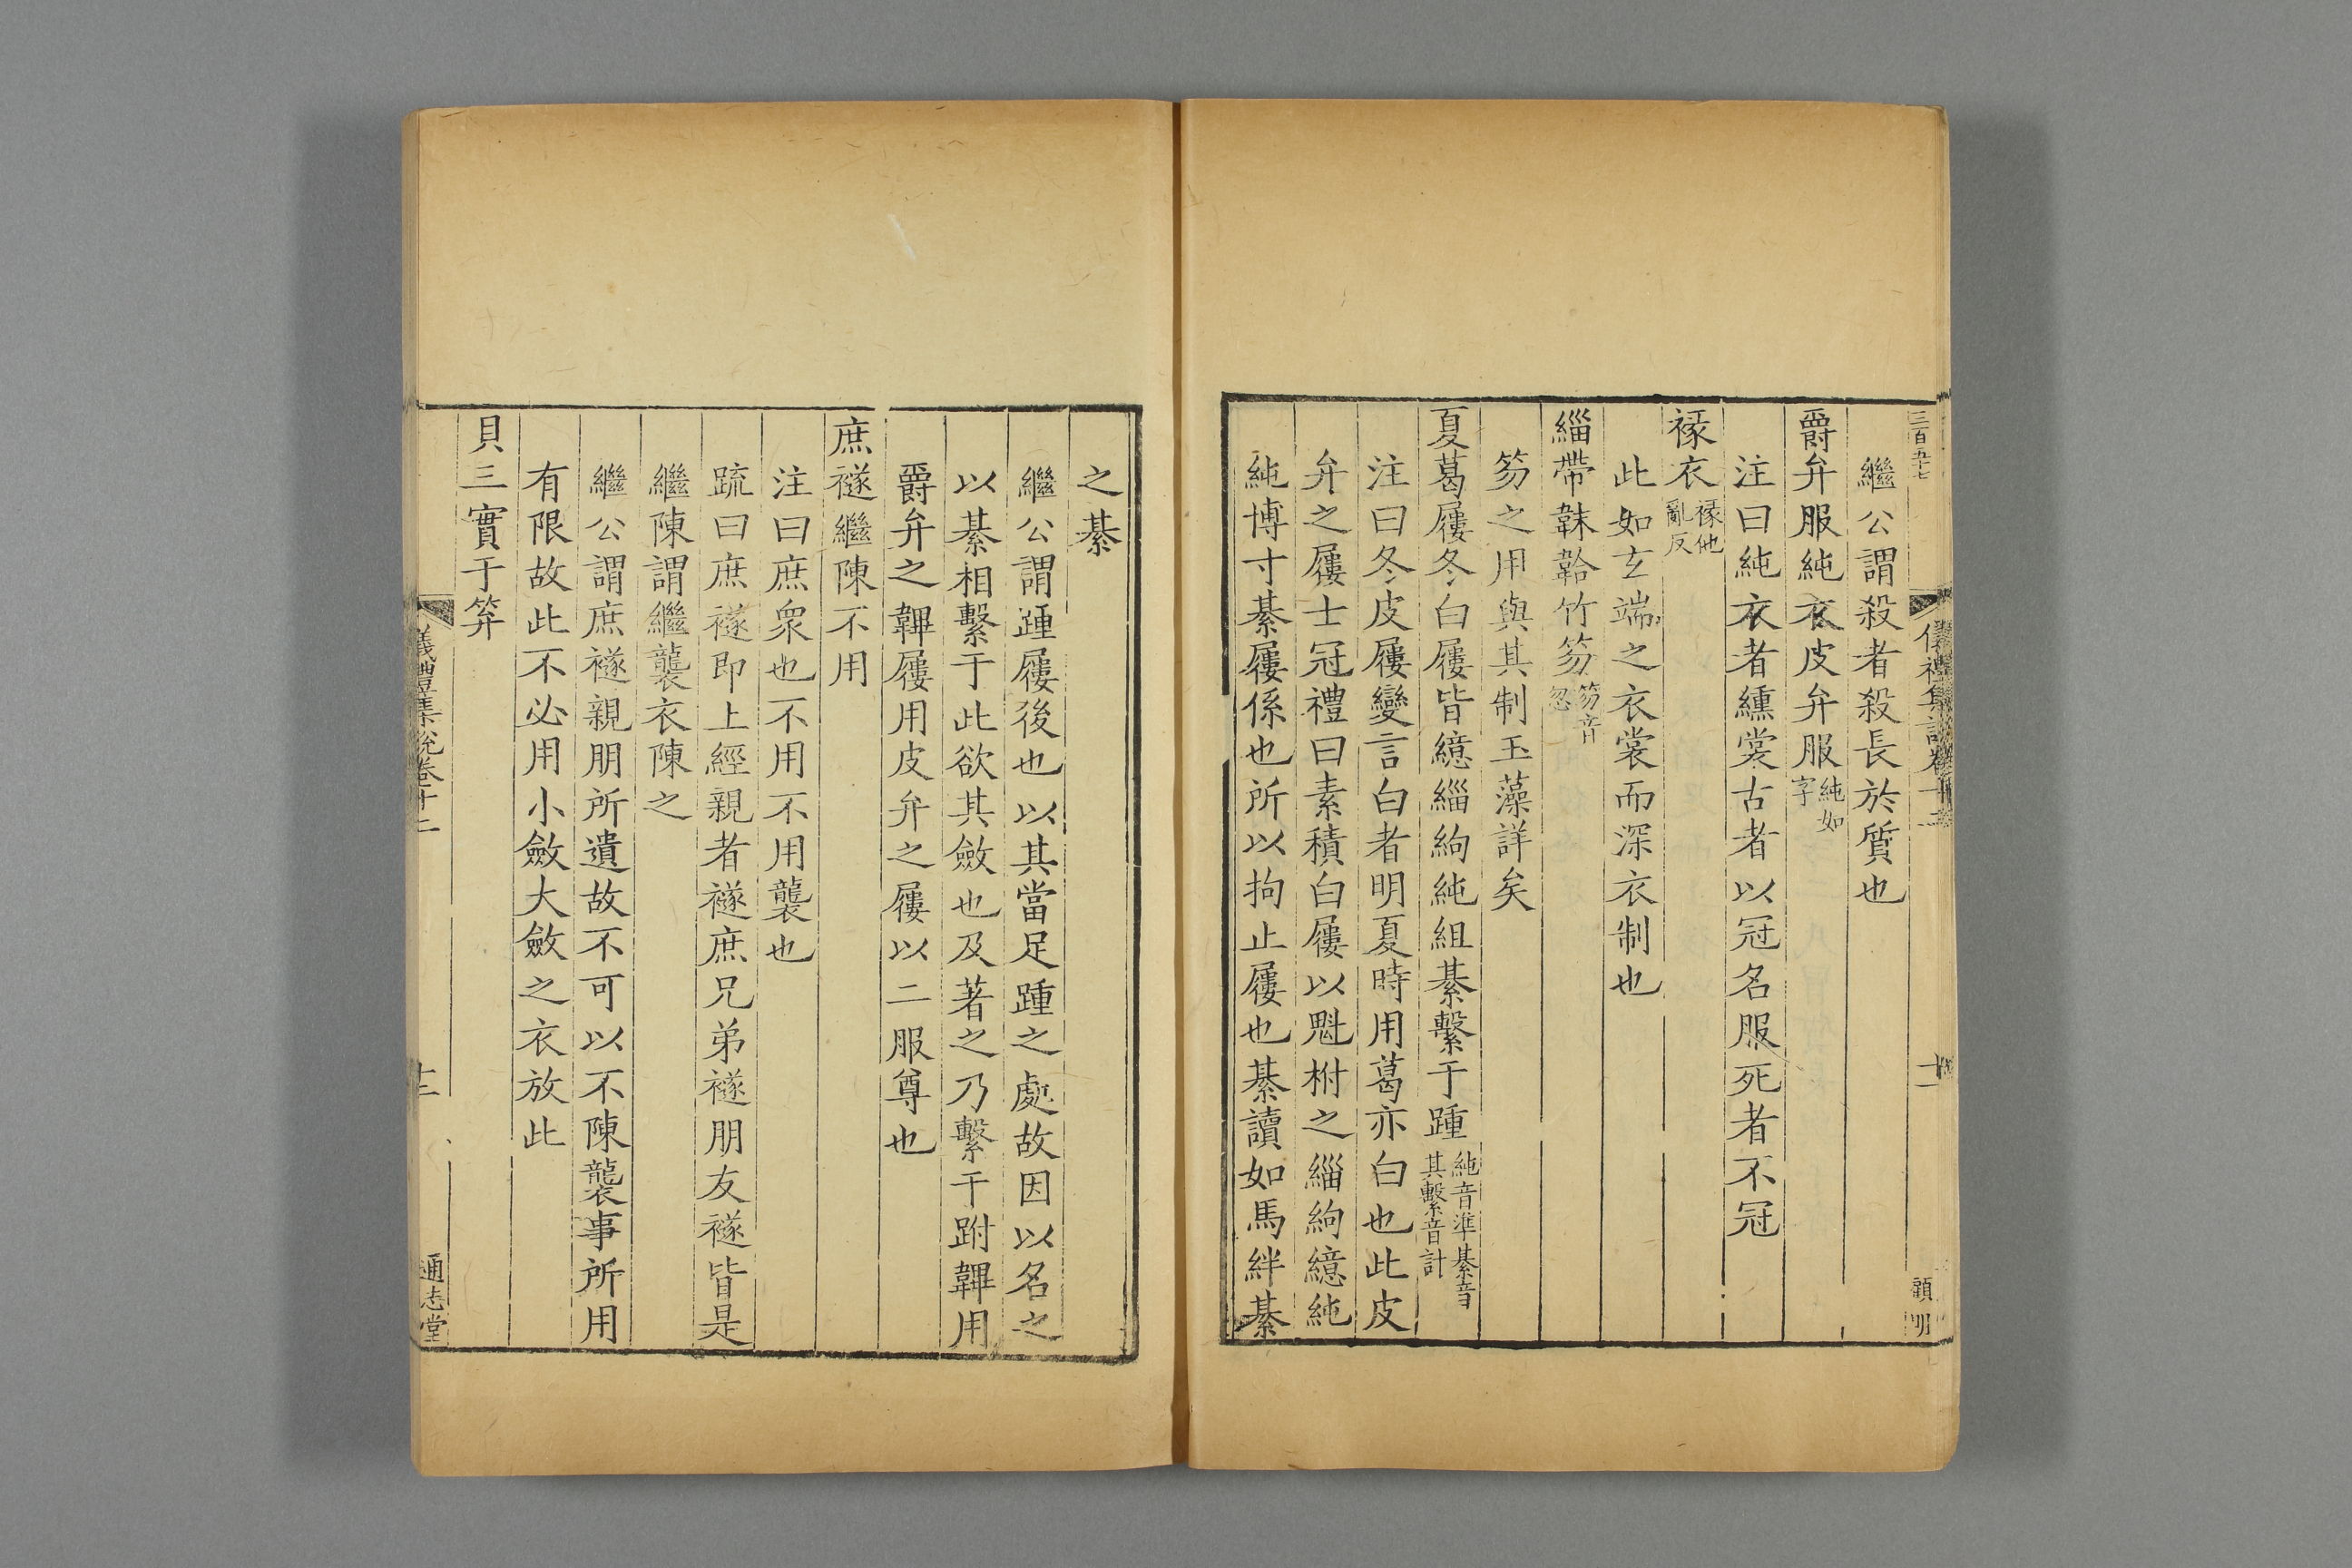 三百五十七
儀禮集說卷十二
十一
顧明
繼公謂殺者殺長於質也
爵弁服純衣皮弁服純如字
注曰純衣者纁裳古者以冠名服死者不冠
褖衣褖他亂反
此如玄端之衣裳而深衣制也
緇帶韎韐竹笏笏音忽
笏之用與其制玉藻詳矣
夏葛屨冬白屨皆繶緇絇純組綦繫于踵純音準綦音其繫音計
注曰冬皮屨變言白者明夏時用葛亦白也此皮
弁之屨士冠禮曰素積白屨以魁柎之緇絇繶純
純博寸綦屨係也所以拘止屨也綦讀如馬絆綦
之綦
繼公謂踵屨後也以其當足踵之處故因以名之
以綦相繫于此欲其斂也及著之乃繫于跗韠用
爵弁之韠屨用皮弁之屨以二服尊也
庶襚繼陳不用
注曰庶眾也不用不用襲也
疏曰庶襚即上經親者襚庶兄弟襚朋友襚皆是
繼陳謂繼襲衣陳之
繼公謂庶襚親朋所遺故不可以不陳襲事所用
有限故此不必用小斂大斂之衣放此
貝三實于笲
儀禮集說卷十二
十二
通志堂